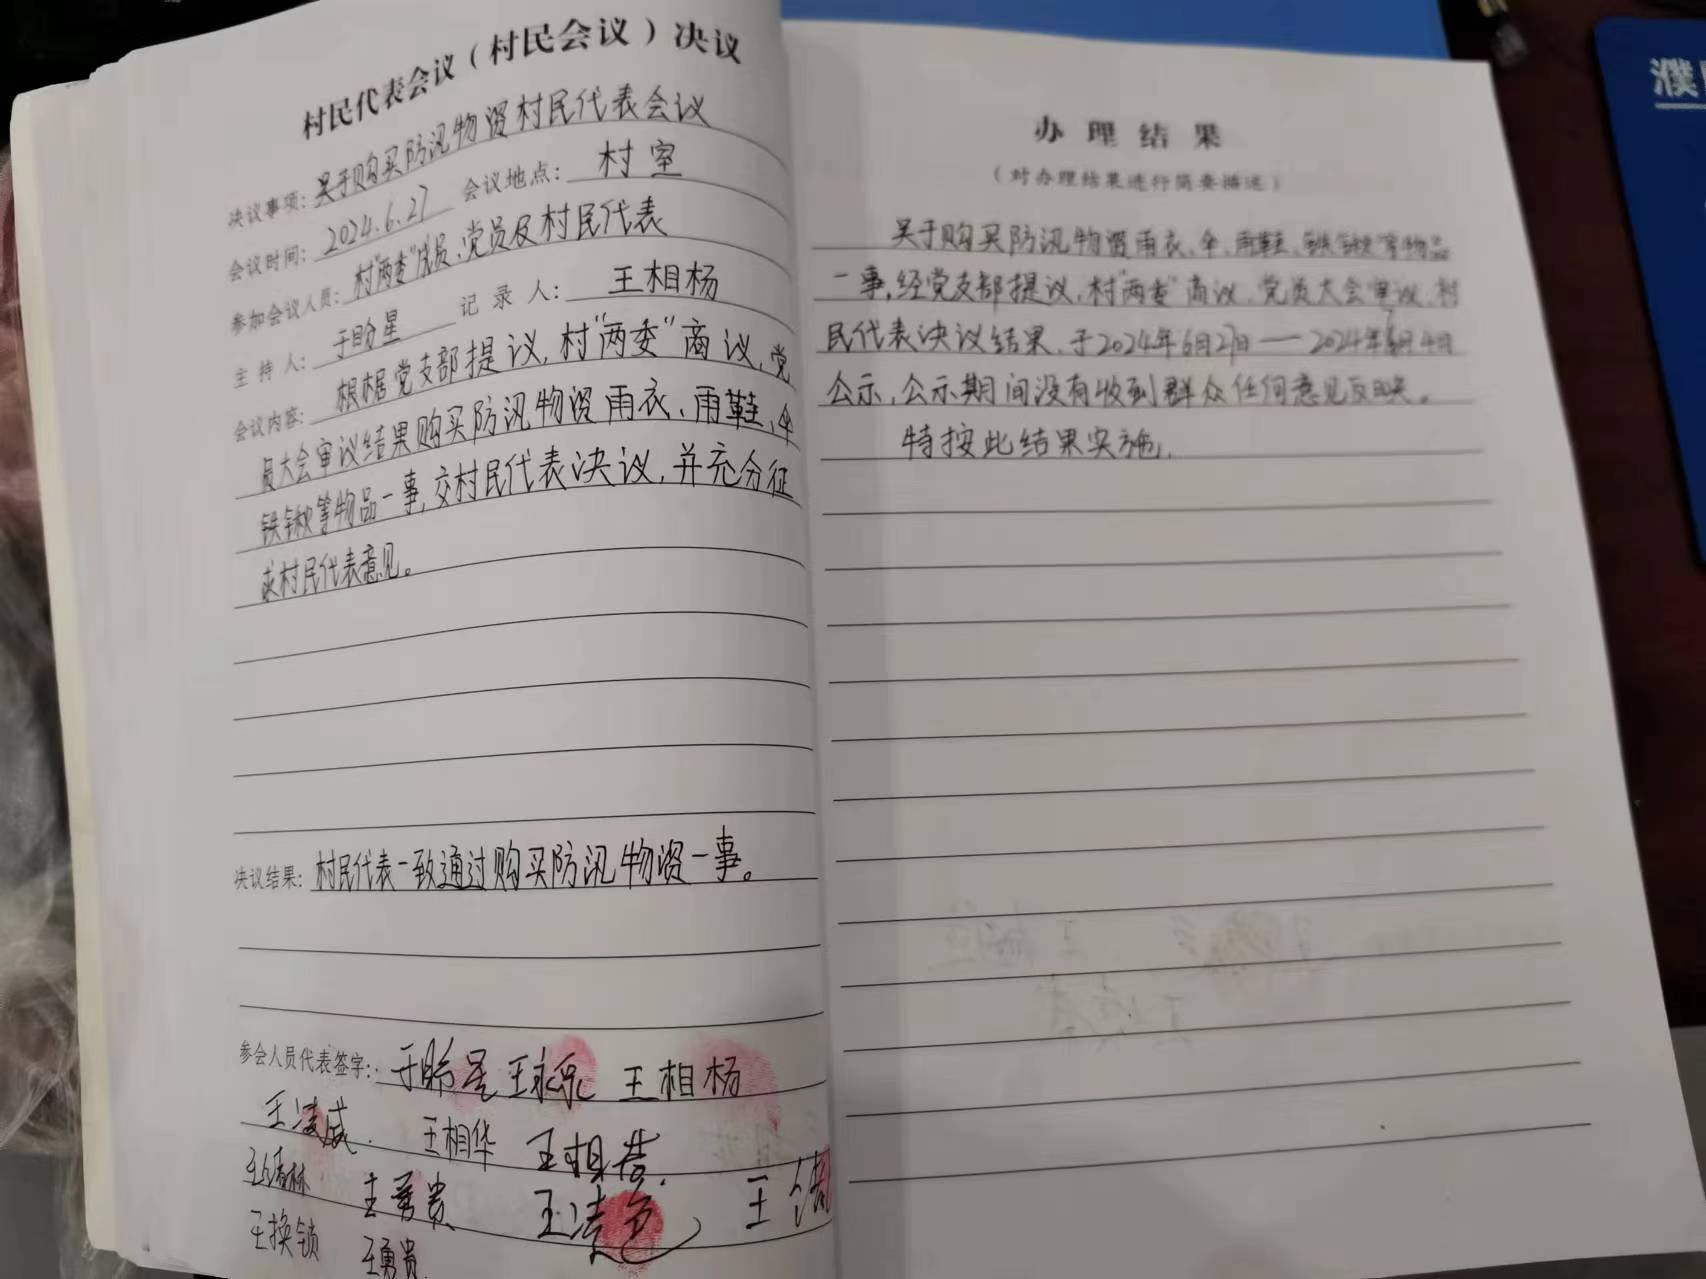 村民代表会议（村民会议）决议
决议事项：关于购买防汛物资村民代表会议
会议时间：2024.6.27 会议地点：村室
参加会议人员：村"两委"成员、党员及村民代表
主持人：于盼星 记录人：王相杨
会议内容：根据党支部提议，村"两委"商议，党
员大会审议结果购买防汛物资雨衣、雨鞋，伞
铁锹等物品一事，交村民代表决议，并充分征
求村民代表意见。
决议结果：村民代表一致通过购买防汛物资一事。
参会人员代表签字：于盼星 王永乐 王相杨
王凌威 王相华 王相营
王春林 王秀贵 王凌 王
王换锁 王勇贵
办理结果
（对办理结果进行简要描述）
关于购买防汛物资雨衣、伞、雨鞋、铁锹等物品
一事，经党支部提议，村"两委"商议，党员大会审议，村
民代表决议结果，于2024年6月27日——2024年7月4日
公示，公示期间没有收到群众任何意见反映。
特按此结果实施.
濮